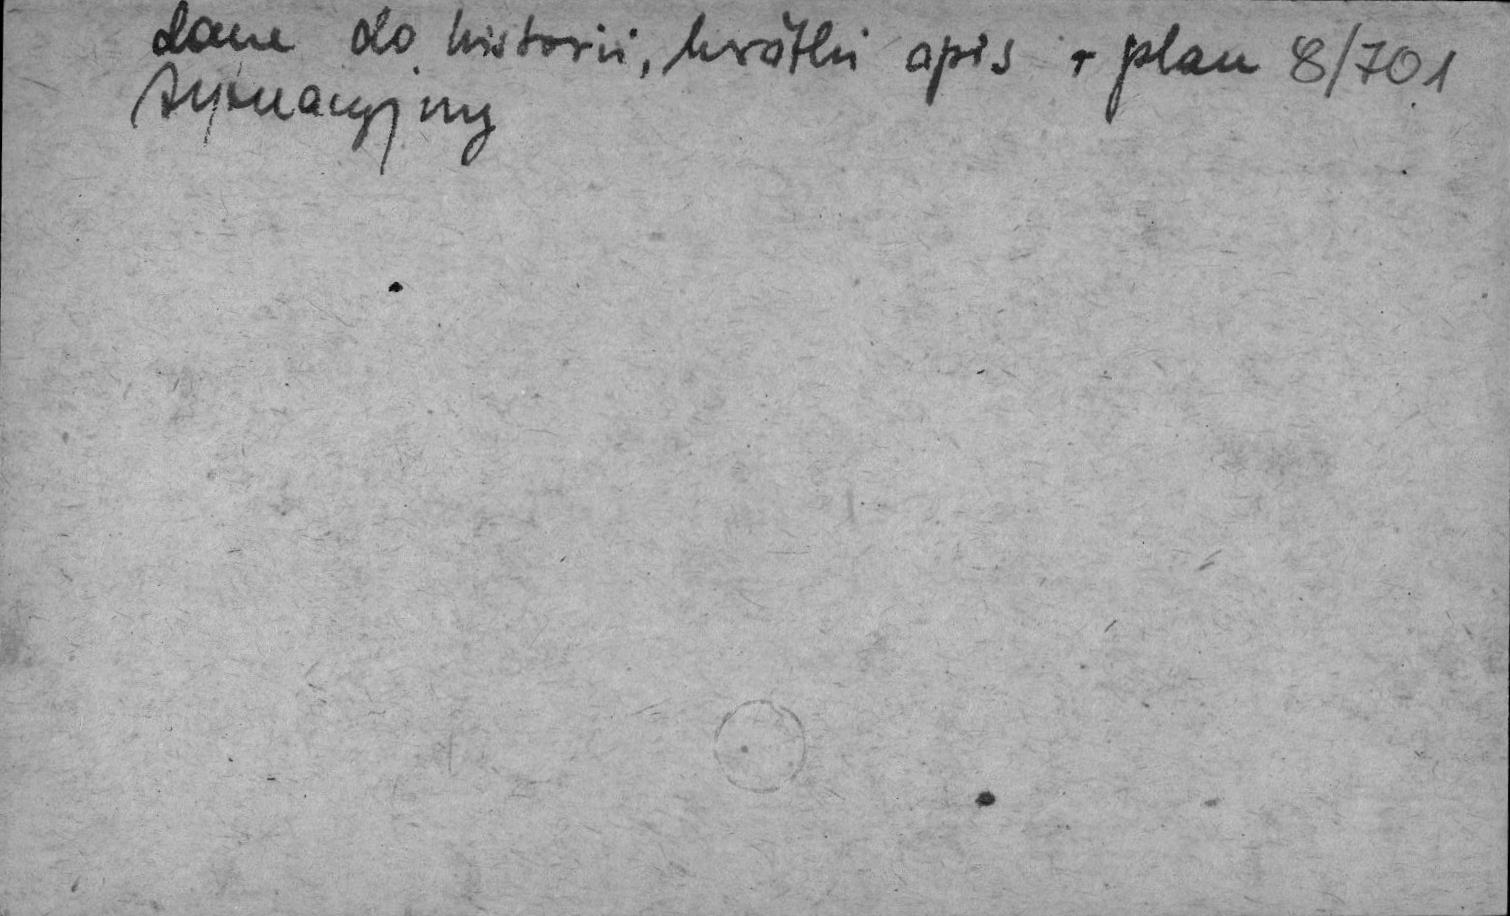 dane do historii, krótki opis + plan 8/701
sytuacyjny